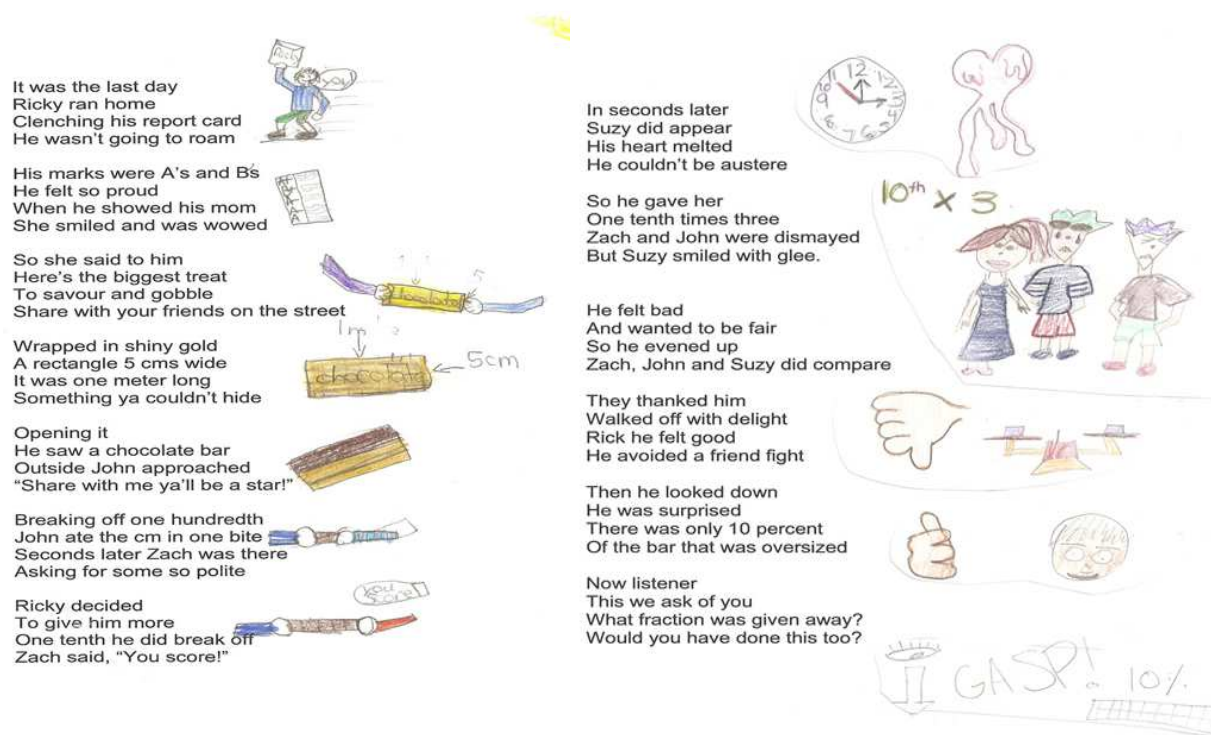 It was the last day
Ricky ran home
Clenching his report card
He wasn't going to roam
Ricky
yay
His marks were A's and B's
He felt so proud
When he showed his mom
She smiled and was wowed
So she said to him
Here's the biggest treat
To savour and gobble
Share with your friends on the street
chocolate
5
Wrapped in shiny gold
A rectangle 5 cms wide
It was one meter long
Something ya couldn't hide
1m
chocolate
5cm
Opening it
He saw a chocolate bar
Outside John approached
"Share with me ya'll be a star!"
Breaking off one hundredth
John ate the cm in one bite
Seconds later Zach was there
Asking for some so polite
Ricky decided
To give him more
One tenth he did break off
Zach said, "You score!"
you
score
In seconds later
Suzy did appear
His heart melted
He couldn't be austere
So he gave her
One tenth times three
Zach and John were dismayed
But Suzy smiled with glee.
10th x 3
He felt bad
And wanted to be fair
So he evened up
Zach, John and Suzy did compare
They thanked him
Walked off with delight
Rick he felt good
He avoided a friend fight
Then he looked down
He was surprised
There was only 10 percent
Of the bar that was oversized
Now listener
This we ask of you
What fraction was given away?
Would you have done this too?
GASP! 10%